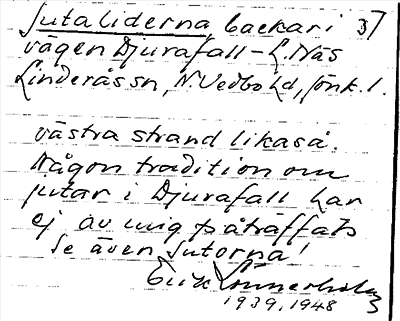 Jutaliderna backar i 3)
vägen Djurafall - L. Näs
Linderås sn, N. Vedbo hd, Jönk. l.
västra strand likaså.
Någon tradition om
jutar i Djurafall har
ej av mig påträffats
Se även Jutorna!
Erik Lönnerholm
1939, 1948